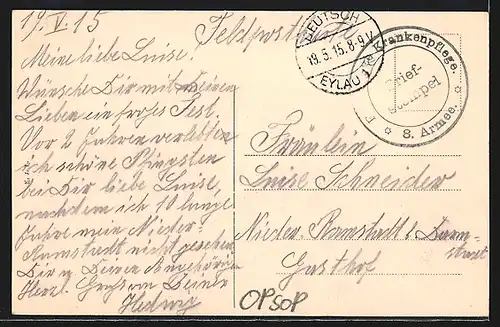 19. V. 15
Feldpostkarte
Meine liebe Luise!
Wünsche Dir mit Deinen
Lieben ein frohes Fest.
Vor 2 Jahren verlebten
ich schöne Pfingsten
bei Dir liebe Luise,
nachdem ich 10 lange
Jahre mein Nieder-
Ramstadt nicht gesehen.
Dir u. Deinen Angehörigen
Herzl. Gruss von Deiner
Hedwig
DEUTSCH
19.5.15. 8-9 V
EYLAU 1
Krankenpflege.
Brief-
stempel
8. Armee.
Fräulein
Luise Schneider
Nieder-Ramstadt b. Darm-
stadt
Gasthof
OPSOP